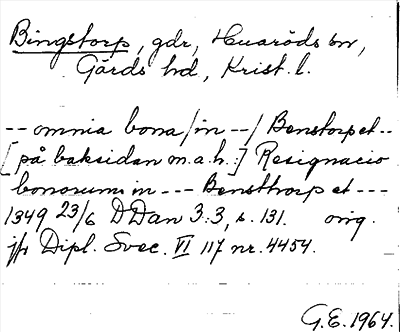 Bingstorp, gdr, Huaröds sn,
Gärds hd, Krist. l.
-- omnia bona/in --/ Benstorp et --
[på baksidan m.a.h.:] Resignacio
bonorum in --- Bensthorp et ---
1349 23/6 DDan 3:3, s. 131. orig.
jfr Dipl. Svec. VI 117 nr. 4454.
G.E. 1964.